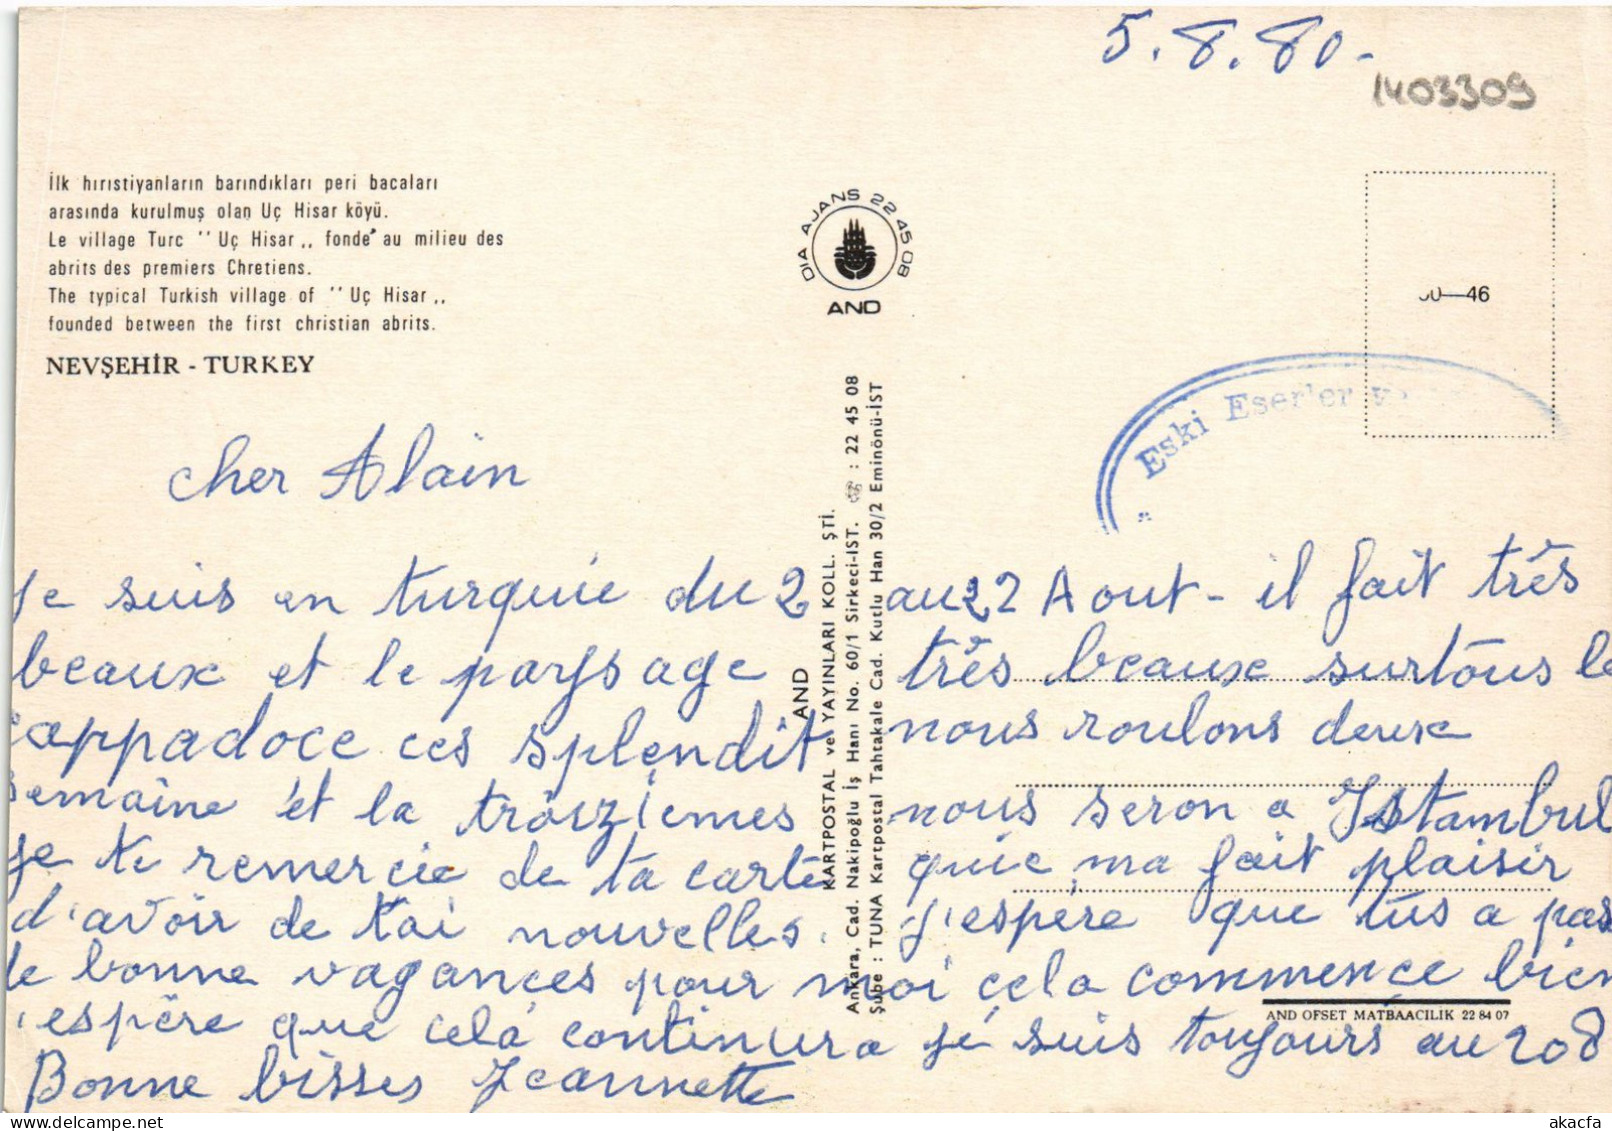 5.8.80.
1403309
İlk hıristiyanların barındıkları peri bacaları
arasında kurulmuş olan Uç Hisar köyü.
Le village Turc '' Uç Hisar ,, fonde' au milieu des
abrits des premiers Chretiens.
The typical Turkish village of '' Uç Hisar ,,
founded between the first christian abrits.
NEVŞEHİR - TURKEY
DIA AJANS 22 45 08
AND
46
Eski Eser'er
AND
KARTPOSTAL ve YAYINLARI KOLL. ŞTİ.
Ankara, Cad. Nakipoğlu İş Hanı No. 60/1 Sirkeci-İST. ☎ : 22 45 08
Şube : TUNA Kartpostal Tahtakale Cad. Kutlu Han 30/2 Eminönü-İST
cher Alain
Je suis en turquie du 2 au 22 Aout - il fait très
beaux et le paysage très beaux surtous le
cappadoce ces splendit nous roulons deux
semaine et la troiziemes nous seron a Istambul
je te remercie de ta carte quie ma fait plaisir
d'avoir de tai nouvelles. J'espère que tus a pas
de bonne vagances pour moi cela commence bien
j'espère que cela continura jé suis toujours au 208
Bonne bisses Jeannette
AND OFSET MATBAACILIK 22 84 07
akacfa